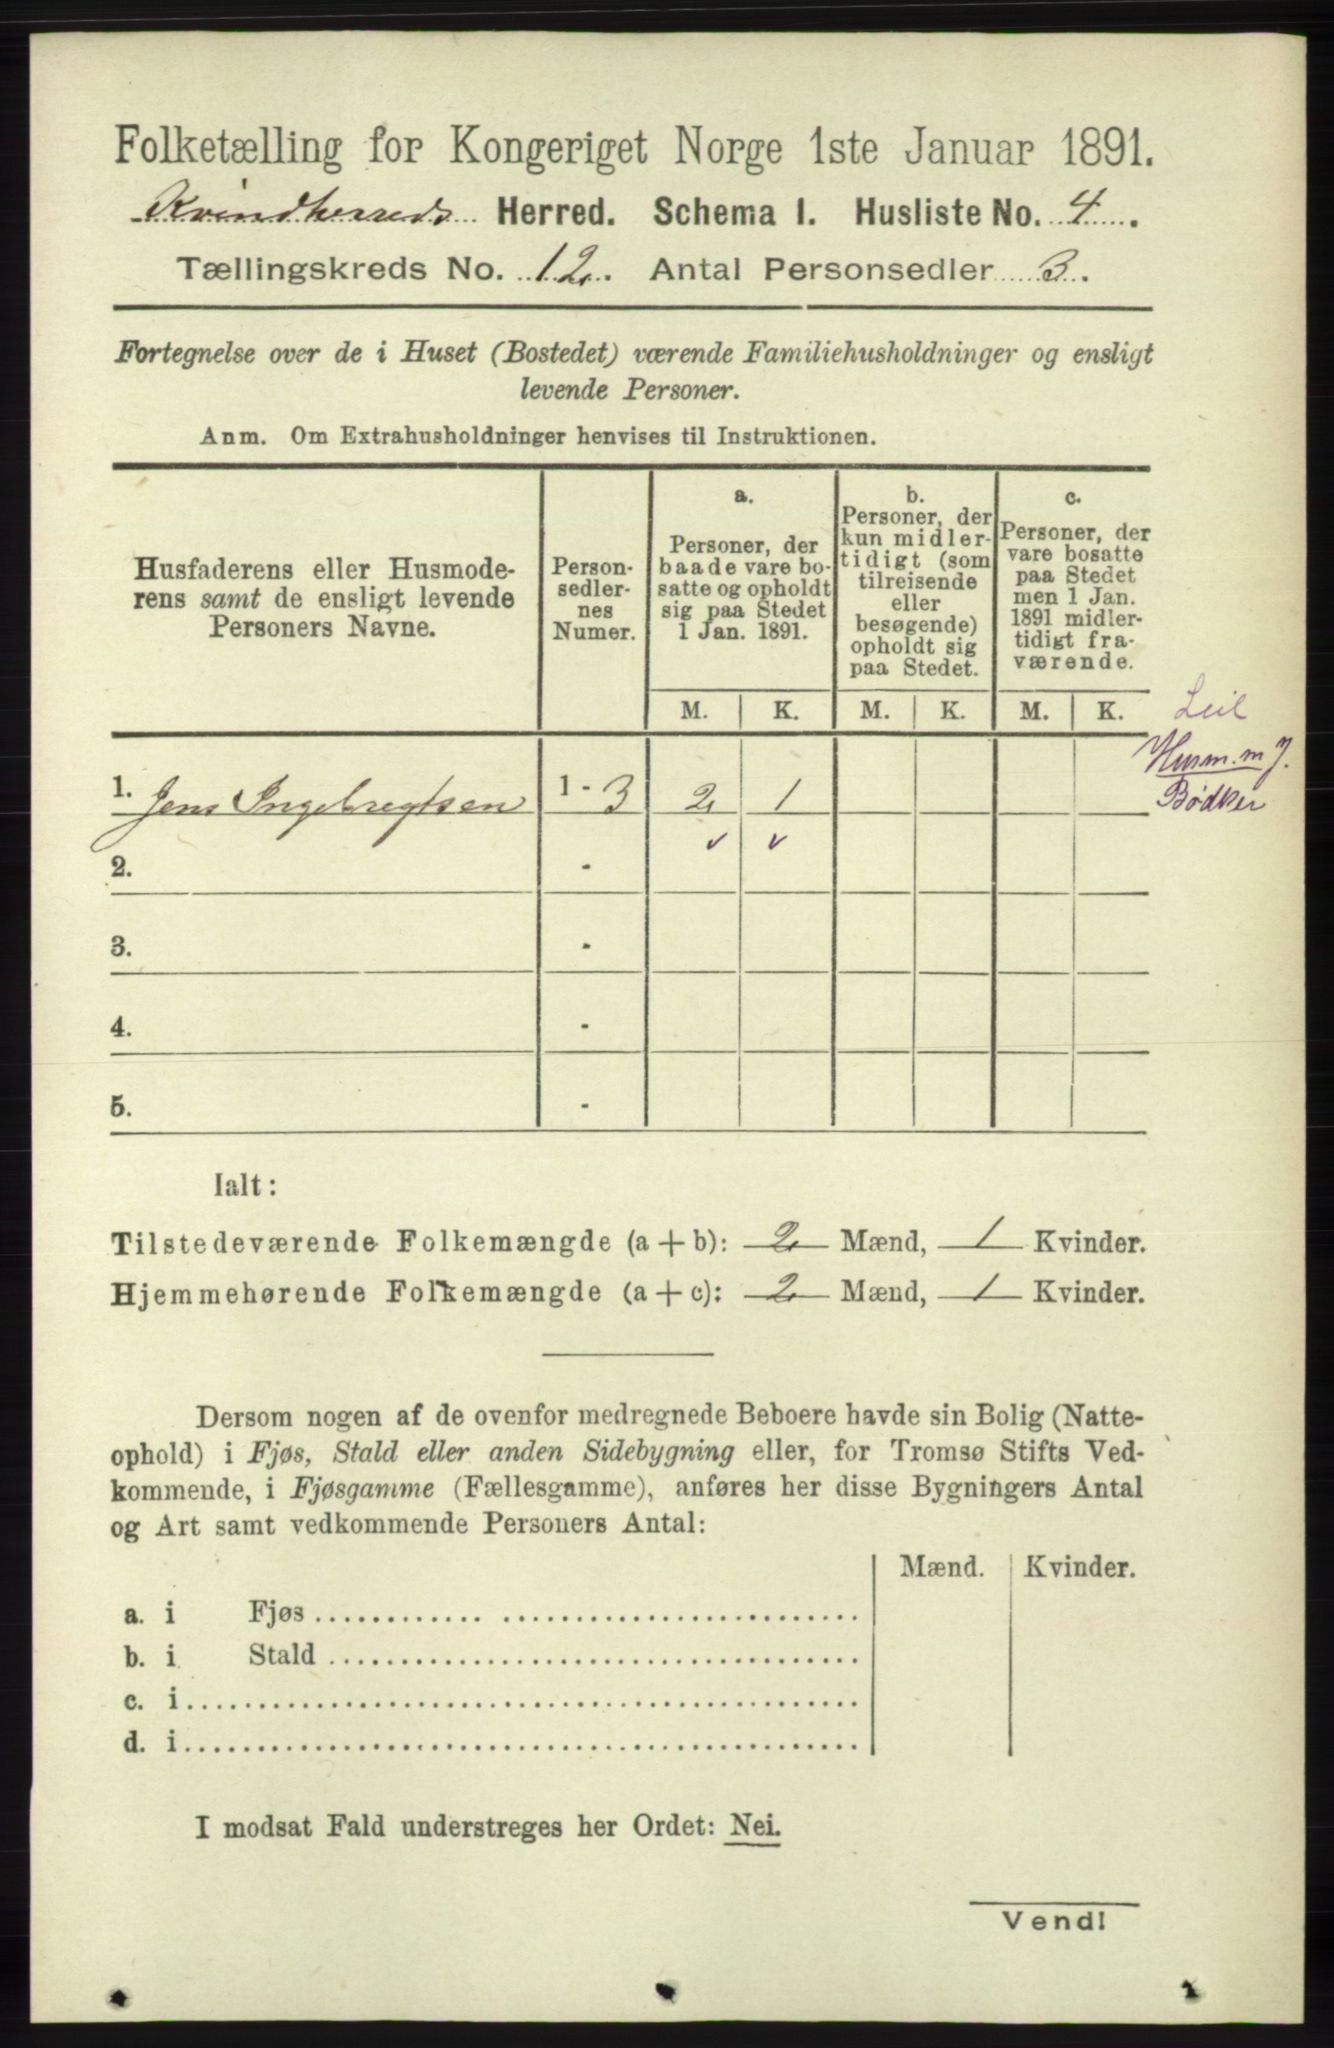 Folketælling for Kongeriget Norge 1ste Januar 1891.
Kvindherreds Herred. Schema I. Husliste No. 4.
Tællingskreds No. 12. Antal Personsedler 3.
Fortegnelse over de i Huset (Bostedet) værende Familiehusholdninger og ensligt
levende Personer.
Anm. Om Extrahusholdninger henvises til Instruktionen.
Husfaderens eller Husmode-
rens samt de ensligt levende
Personers Navne.
Person-
sedler-
nes
Numer.
a.
Personer, der
baade vare bo-
satte og opholdt
sig paa Stedet
1 Jan. 1891.
b.
Personer, der
kun midler-
tidigt (som
tilreisende
eller
besøgende)
opholdt sig
paa Stedet.
c.
Personer, der
vare bosatte
paa Stedet
men 1 Jan.
1891 midler-
tidigt fra-
værende.
M. K. M. K. M. K.
Leil
Husm. m J.
Bødker
1. Jens Ingebregtsen 1 - 3 2 1
2. -
3. -
4. -
5. -
Ialt:
Tilstedeværende Folkemængde (a + b): 2 Mænd, 1 Kvinder.
Hjemmehørende Folkemængde (a + c): 2 Mænd, 1 Kvinder.
Dersom nogen af de ovenfor medregnede Beboere havde sin Bolig (Natte-
ophold) i Fjøs, Stald eller anden Sidebygning eller, for Tromsø Stifts Ved-
kommende, i Fjøsgamme (Fællesgamme), anføres her disse Bygningers Antal
og Art samt vedkommende Personers Antal:
Mænd. Kvinder.
a. i Fjøs
b. i Stald
c. i
d. i
I modsat Fald understreges her Ordet: Nei.
Vend!